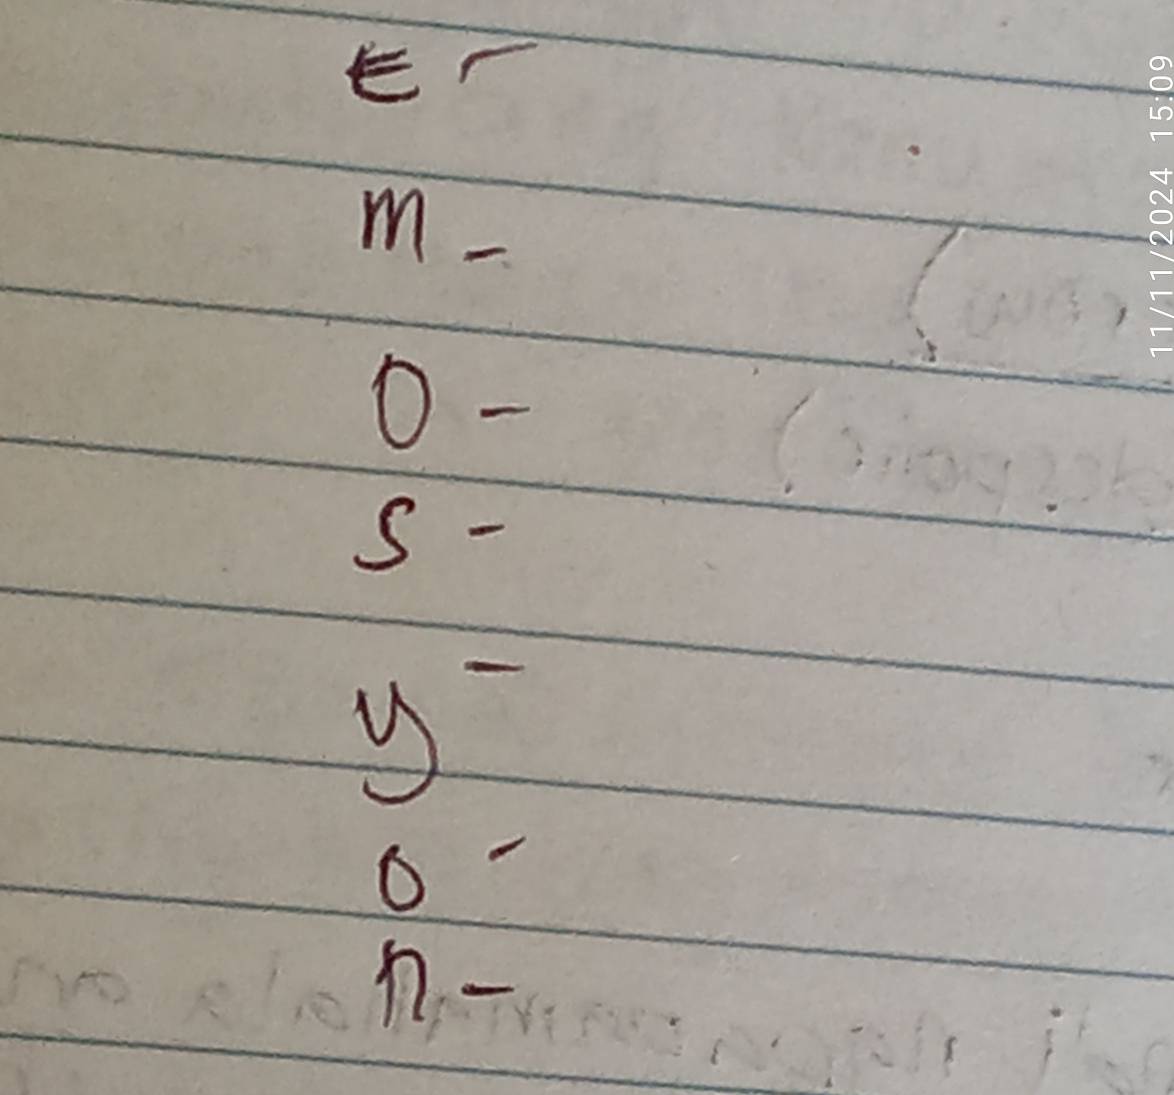 E -
m -
O -
S -
y -
o -
n -
11/11/2024 15:09